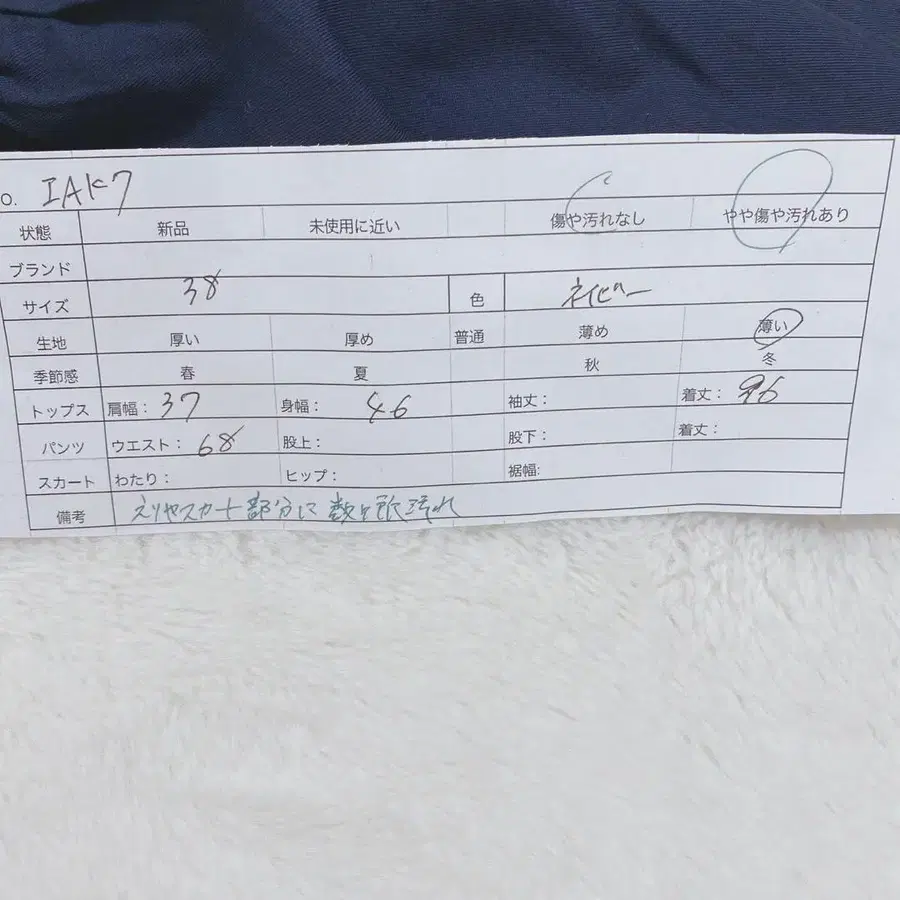 o. IAK7
状態 新品 未使用に近い 傷や汚れなし やや傷や汚れあり
ブランド
サイズ 38 色 ネイビー
生地 厚い 厚め 普通 薄め 薄い
季節感 春 夏 秋 冬
トップス 肩幅：37 身幅：46 袖丈： 着丈：96
パンツ ウエスト：68 股上： 股下： 着丈：
スカート わたり： ヒップ： 裾幅:
備考 えりやスカート部分に数ヶ所汚れ